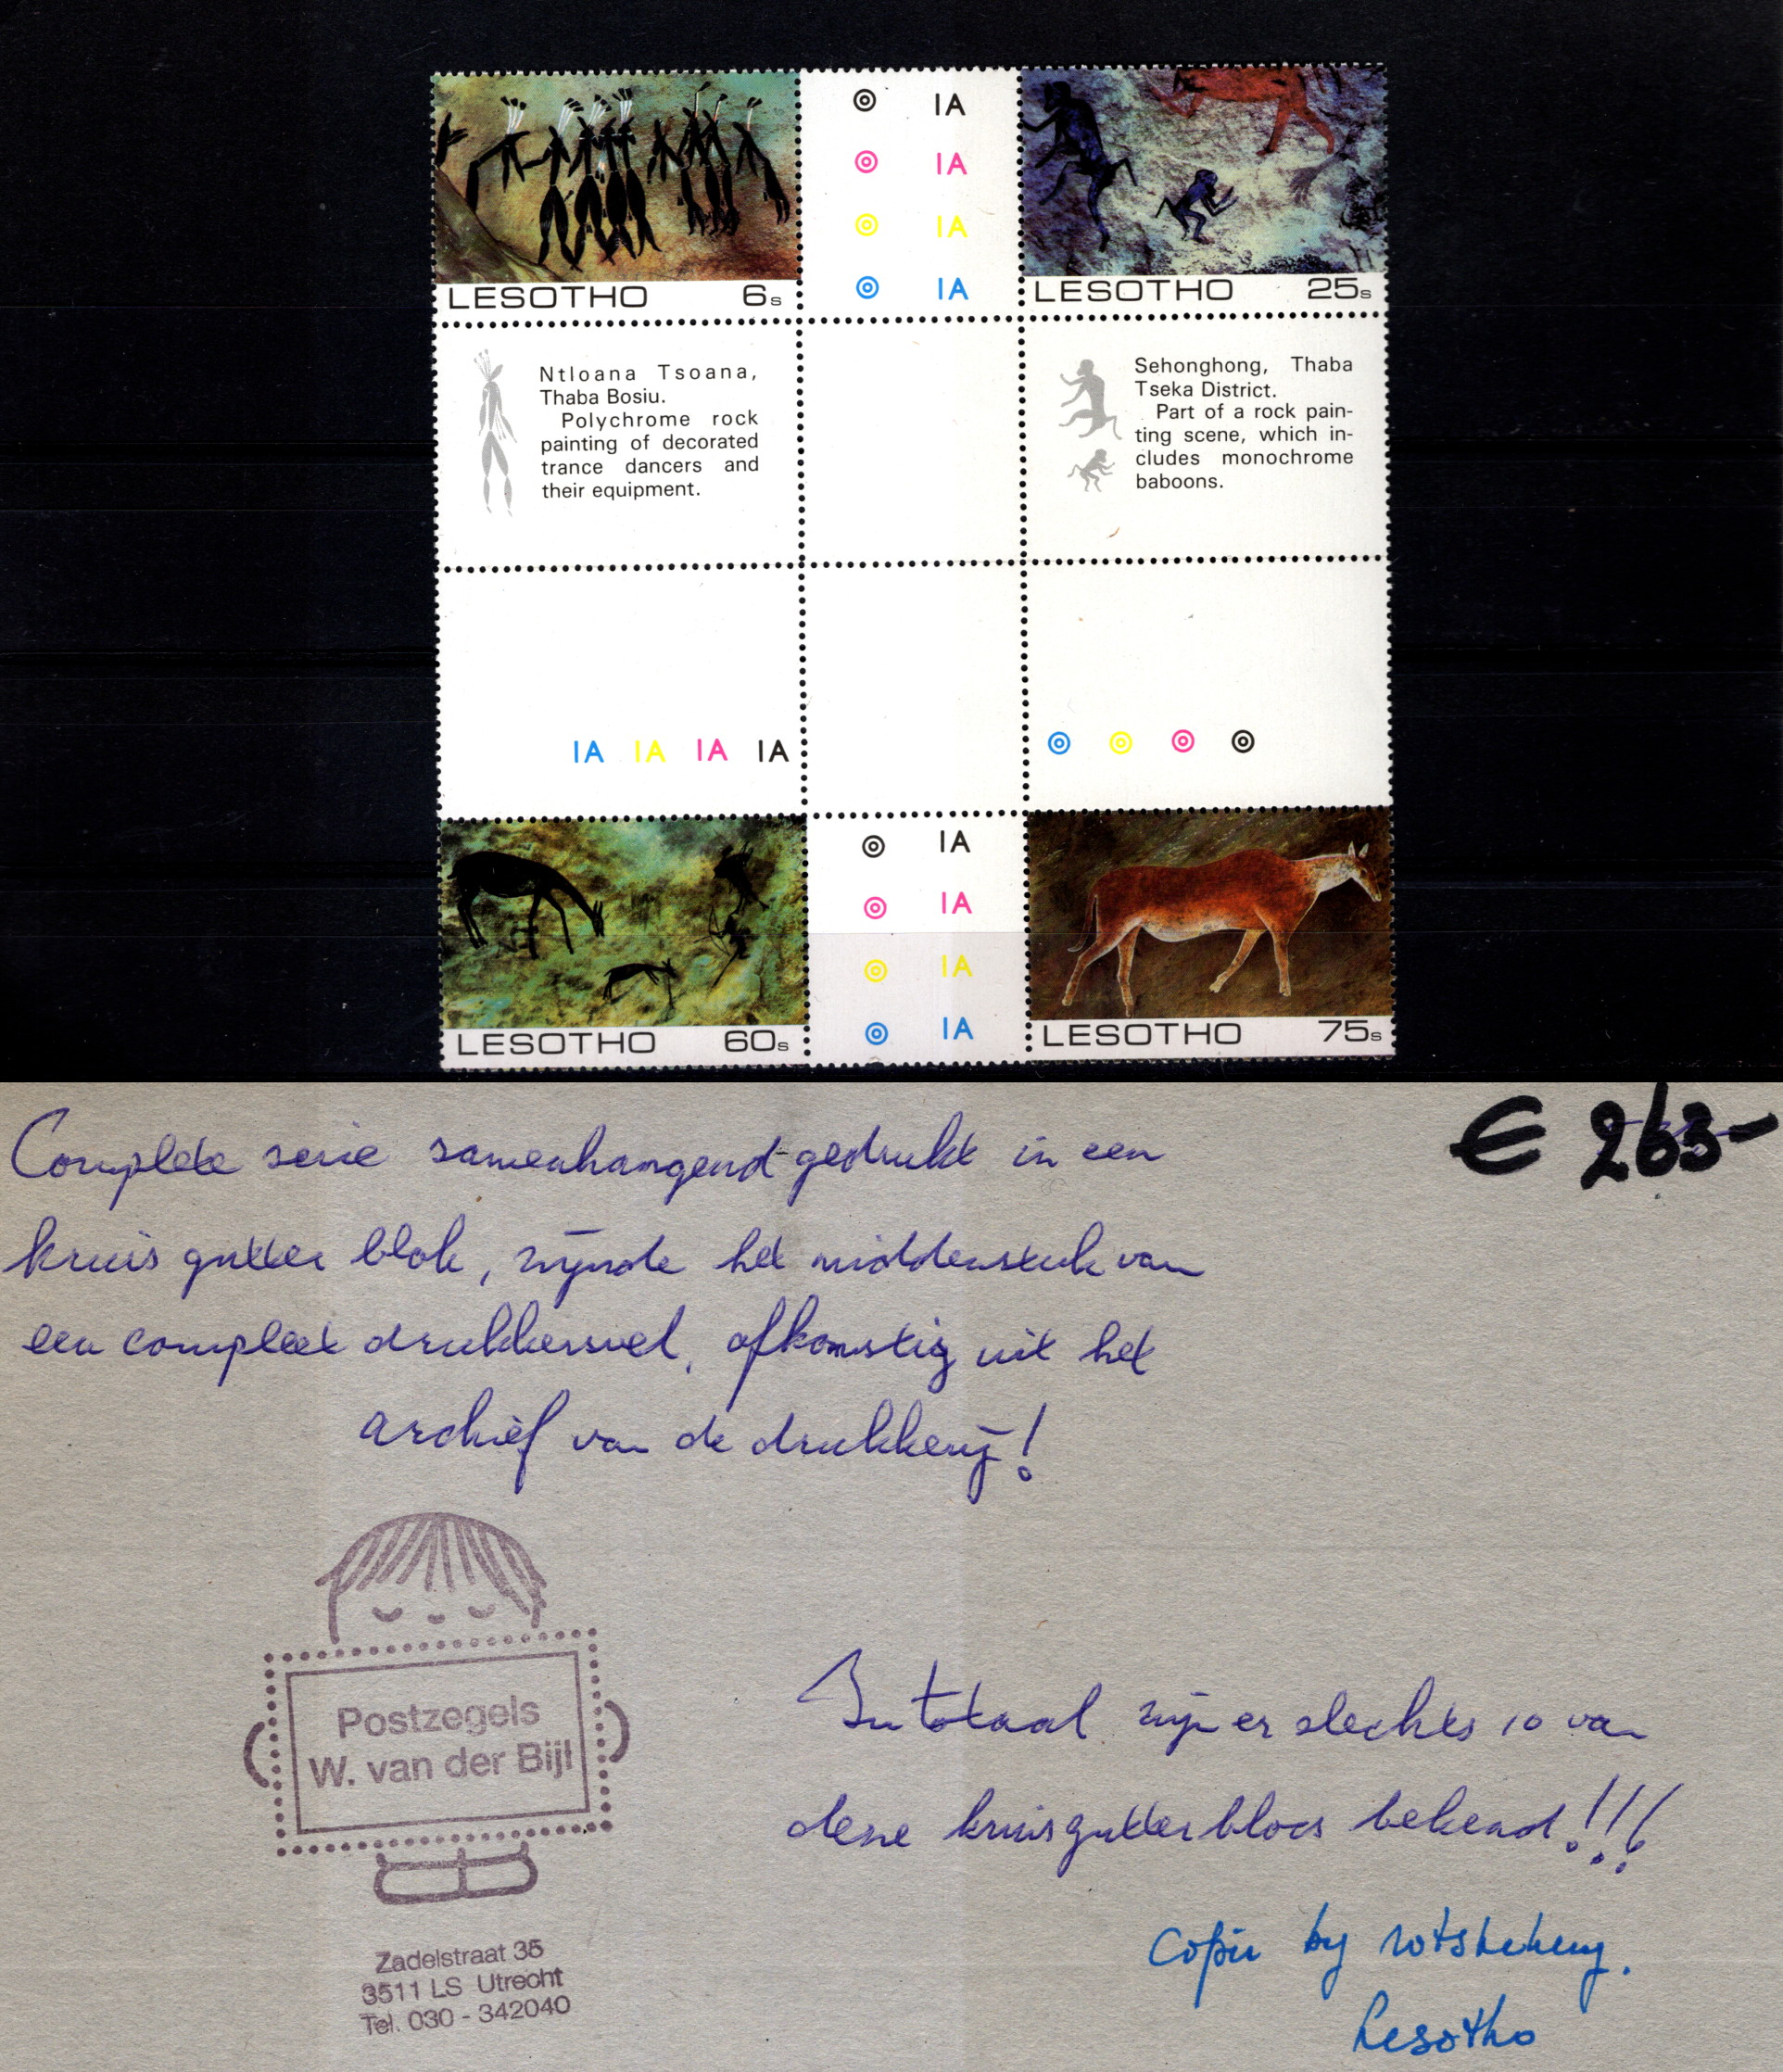 IA
IA
IA
IA
LESOTHO 6s
LESOTHO 25s
Ntloana Tsoana,
Thaba Bosiu.
Polychrome rock
painting of decorated
trance dancers and
their equipment.
Sehonghong, Thaba
Tseka District.
Part of a rock pain-
ting scene, which in-
cludes monochrome
baboons.
IA IA IA IA
IA
IA
IA
IA
LESOTHO 60s
LESOTHO 75s
€ 263-
Complete serie samenhangend gedrukt in een
kruis gutter blok, zijnde het middenstuk van
een compleet drukkersvel, afkomstig uit het
archief van de drukkerij!
Postzegels
W. van der Bijl
Zadelstraat 35
3511 LS Utrecht
Tel. 030 - 342040
In totaal zijn er slechts 10 van
deze kruisgutterblocs bekend!!!
Copie by rotstekeny.
Lesotho